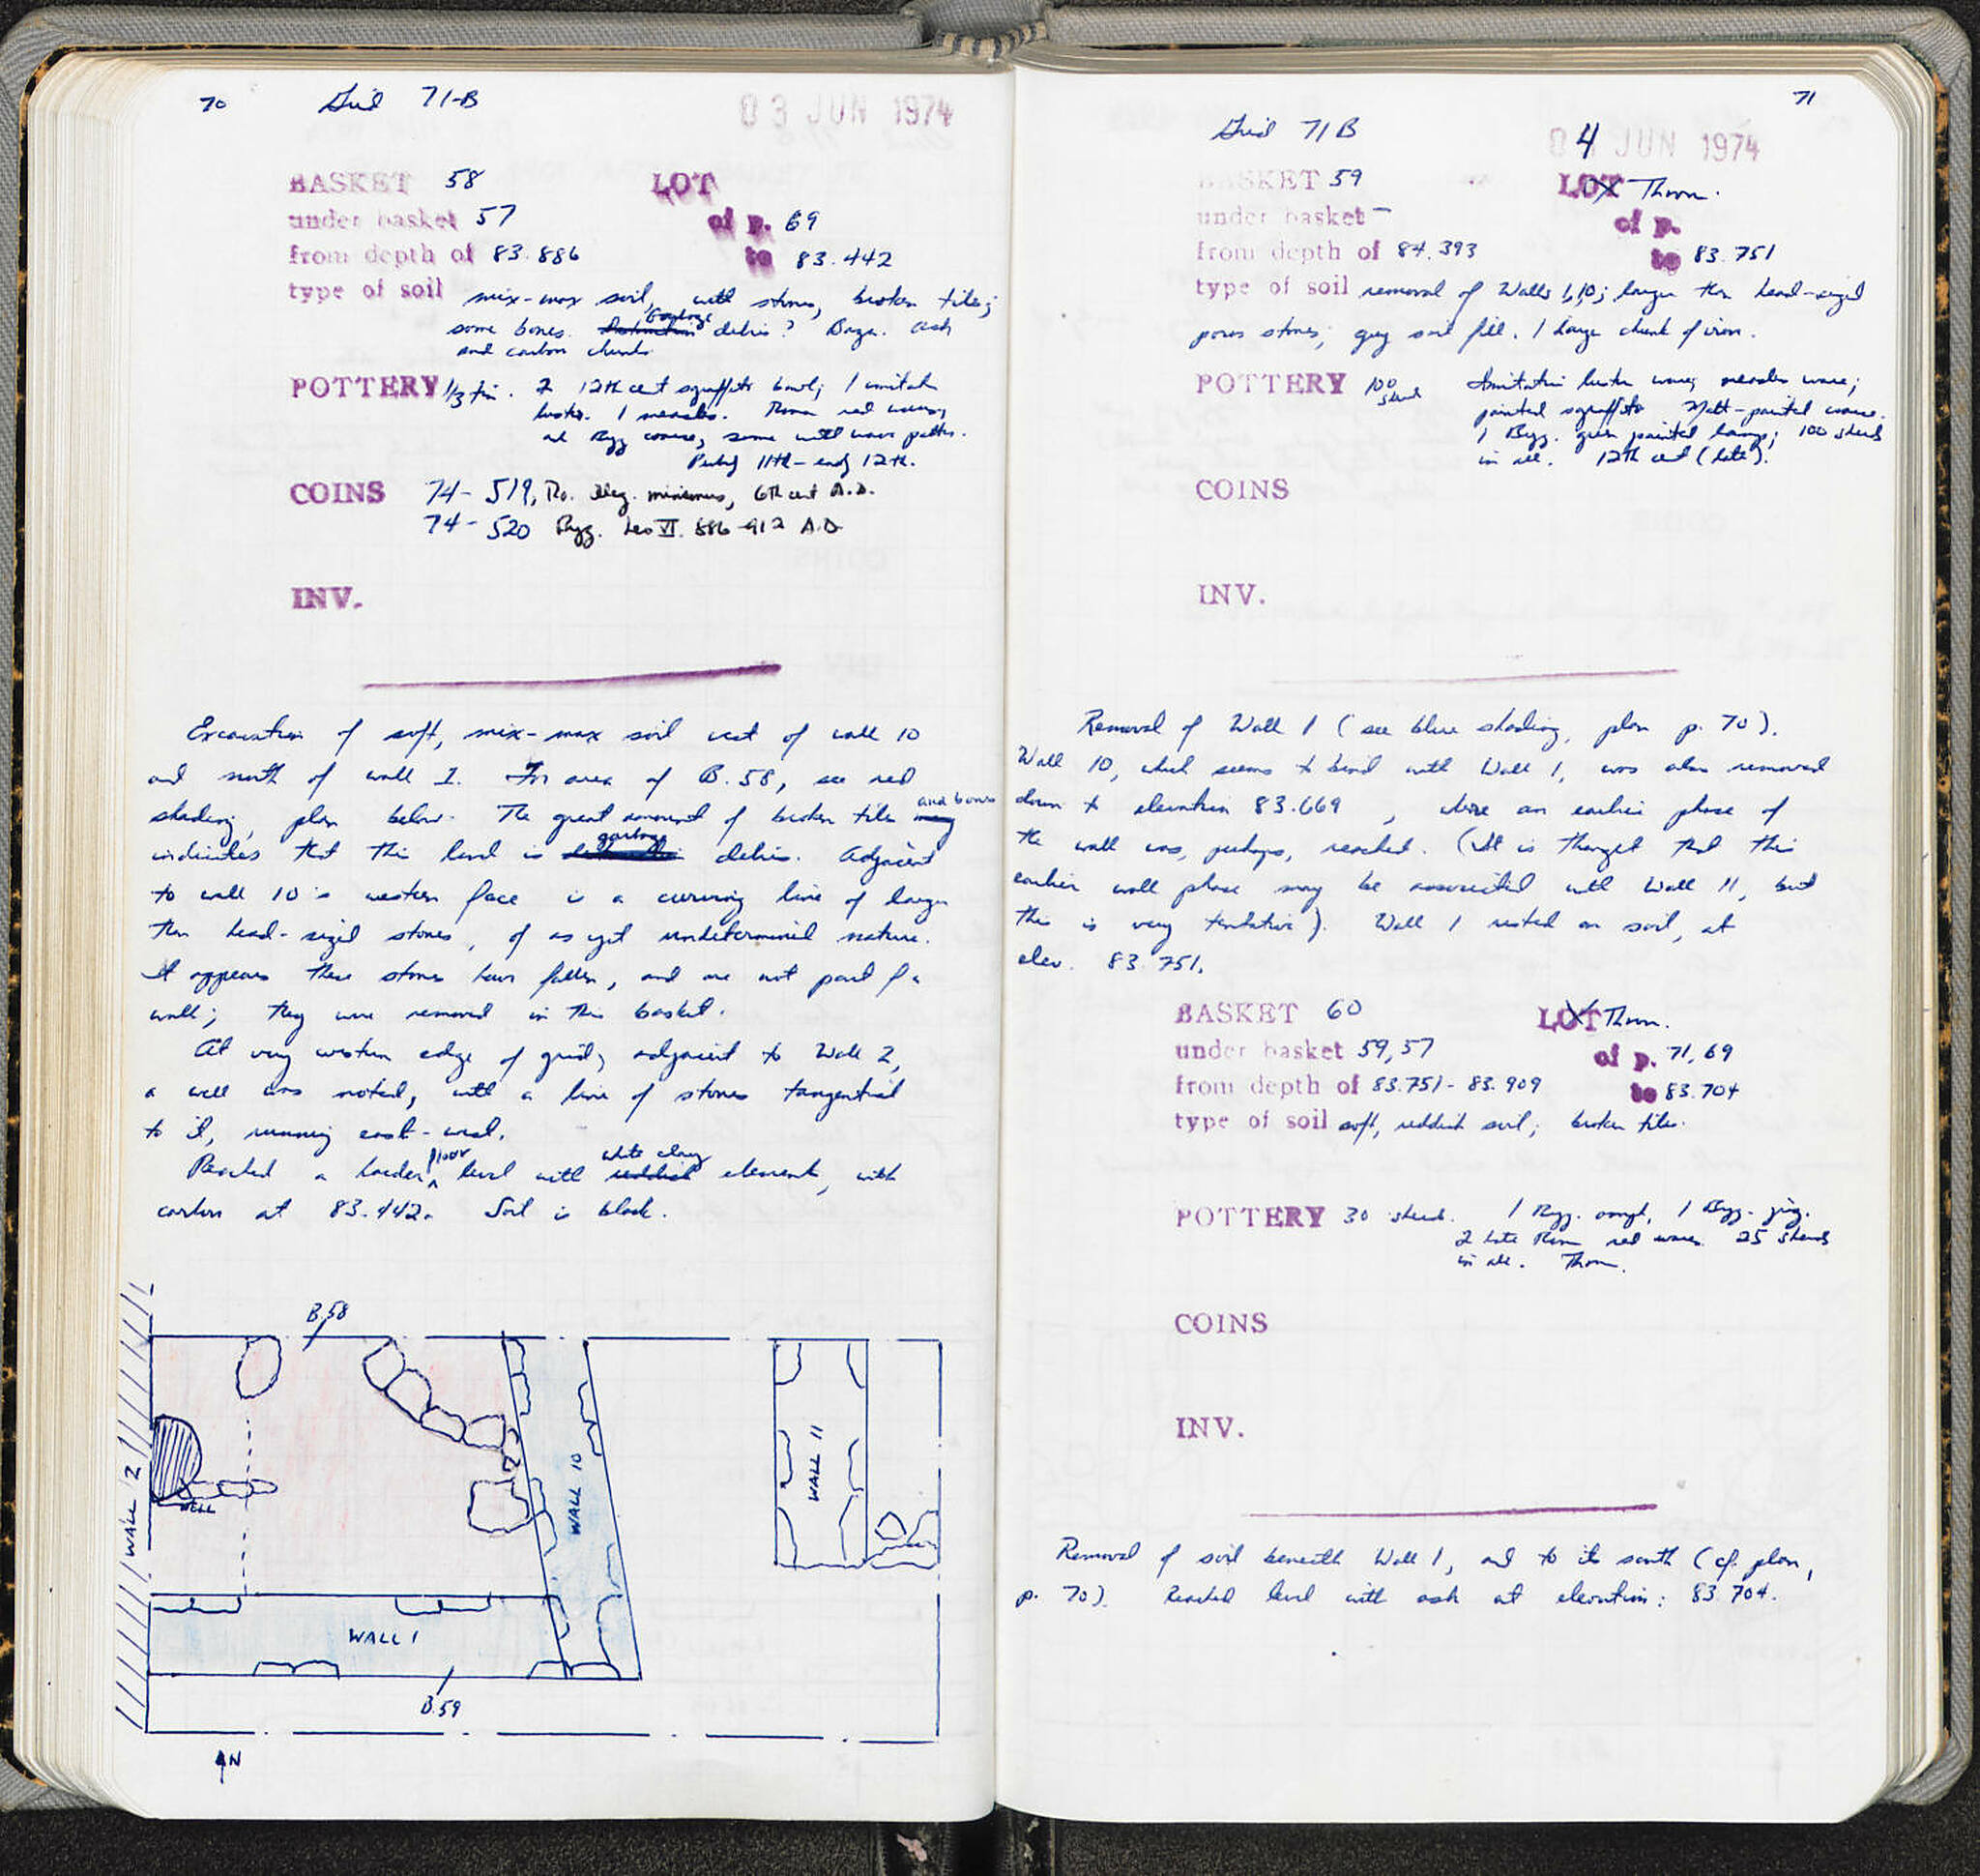 70 Grid 71-B 03 JUN 1974
BASKET 58 LOT
under basket 57 of p. 69
from depth of 83.886 to 83.442
type of soil mix-max soil, with stones, broken tiles;
some bones. garbage debris? Byza. Ash
and carbon chunks.
POTTERY 1/3 tin. 2 12th cent sgraffito bowl; 1 imitat
luster. 1 measles. Roman red wares,
all Byz coarse, some with wave pattn.
11th - early 12th.
COINS 74-519, Ro. illeg. minimus, 6th cent A.D.
74-520 Byz. Leo VI. 886-912 A.D
INV.
Excavation of soft, mix-max soil west of wall 10
and north of wall 1. For area of B.58, see red
shading, plan below. The great amount of broken tiles and bones
indicates that this level is garbage debris. Adjacent
to wall 10's western face is a curving line of larger
than head-sized stones, of as yet undetermined nature.
It appears these stones have fallen, and are not part of a
wall; they were removed in this basket.
At very western edge of grid, adjacent to Wall 2,
a well was noted, with a line of stones tangential
to it, running east-west.
Reached a harder floor level with white clay element, with
carbon at 83.442. Soil is black.
B.58
WALL 2
WELL
WALL 10
WALL 11
WALL 1
B.59
N
71
Grid 71B 04 JUN 1974
BASKET 59 LOT Thrown.
under basket - of p.
from depth of 84.393 to 83.751
type of soil removal of Walls 1, 10; larger than head-sized
poros stones; grey soil fill. 1 large chunk of iron.
POTTERY 100 sherd Imitation luster ware; measles ware;
painted sgraffito Matt-painted ware.
1 Byz. green painted lamp; 100 sherds
in all. 12th cent (late).
COINS
INV.
Removal of Wall 1 (see blue shading, plan p. 70).
Wall 10, which seems to bond with Wall 1, was also removed
down to elevation 83.669, where an earlier phase of
the wall was, perhaps, reached. (It is thought that this
earlier wall phase may be associated with Wall 11, but
this is very tentative). Wall 1 rested on soil, at
elev. 83.751.
BASKET 60 LOT Thrown.
under basket 59, 57 of p. 71, 69
from depth of 83.751 - 83.909 to 83.704
type of soil soft, reddish soil; broken tiles.
POTTERY 30 sherds. 1 Byz. amph, 1 Byz. jug.
2 late Roman red wares 25 sherds
in all. Thrown.
COINS
INV.
Removal of soil beneath Wall 1, and to its south (cf. plan,
p. 70). Reached level with ash at elevation: 83.704.